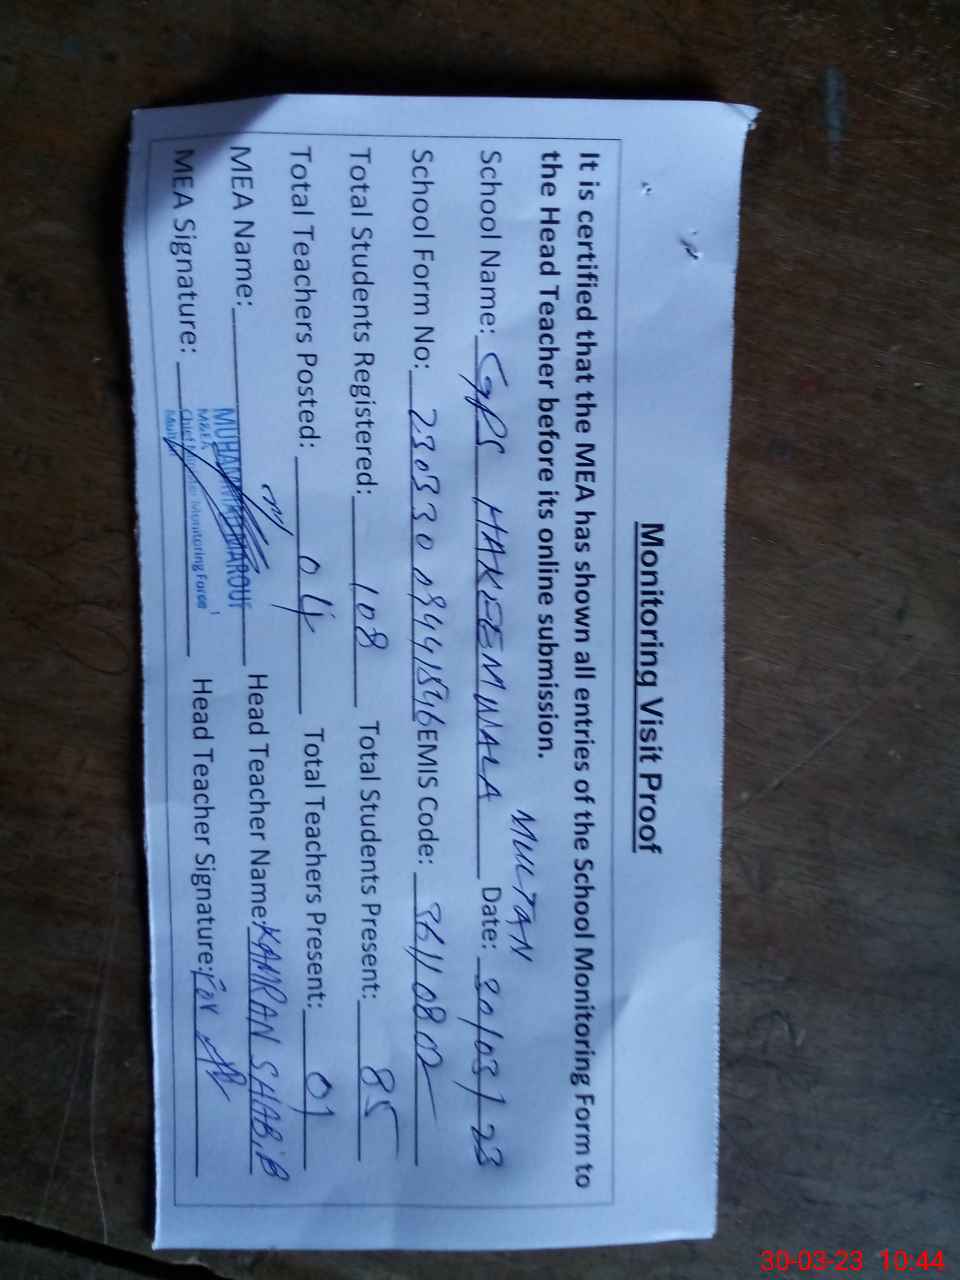 Monitoring Visit Proof
It is certified that the MEA has shown all entries of the School Monitoring Form to
the Head Teacher before its online submission.
MULTAN
School Name: GPS HAKEEMWALA Date: 30/03/23
School Form No: 230330094441546 EMIS Code: 36110802
Total Students Registered: 108 Total Students Present: 85
Total Teachers Posted: 04 Total Teachers Present: 01
MEA Name: MUHAMMAD MAROUF Head Teacher Name: KAMRAN SHABIB
M&EA
MEA Signature: Chief Minister Monitoring Force Head Teacher Signature: For
30-03-23 10:44